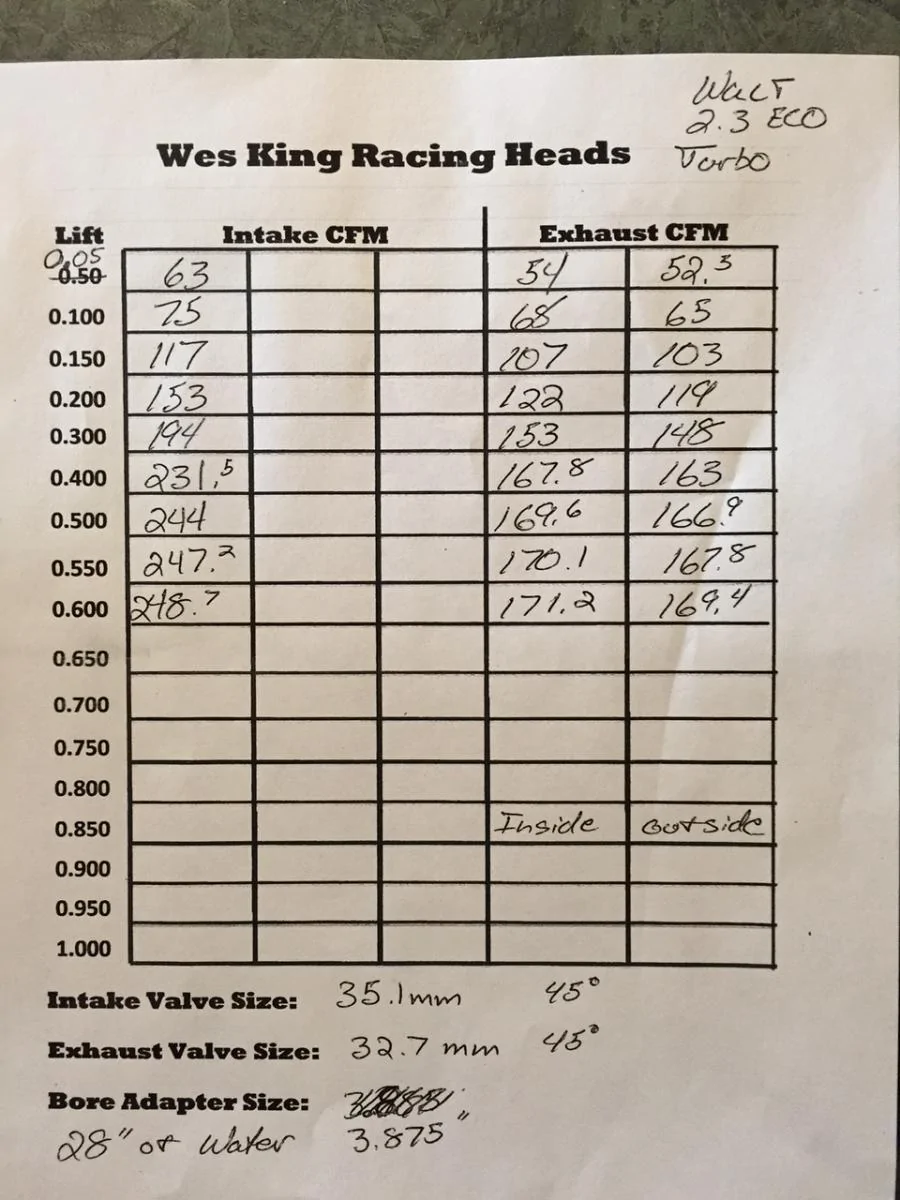 Walt
2.3 ECO
Turbo
Wes King Racing Heads
Lift Intake CFM Exhaust CFM
0.05
0.50 63 54 52.3
0.100 75 68 65
0.150 117 107 103
0.200 153 122 119
0.300 194 153 148
0.400 231.5 167.8 163
0.500 244 169.6 166.9
0.550 247.2 170.1 167.8
0.600 248.7 171.2 169.4
0.650
0.700
0.750
0.800
0.850 Inside outside
0.900
0.950
1.000
Intake Valve Size: 35.1mm 45°
Exhaust Valve Size: 32.7 mm 45°
Bore Adapter Size:
28" of Water 3.875"